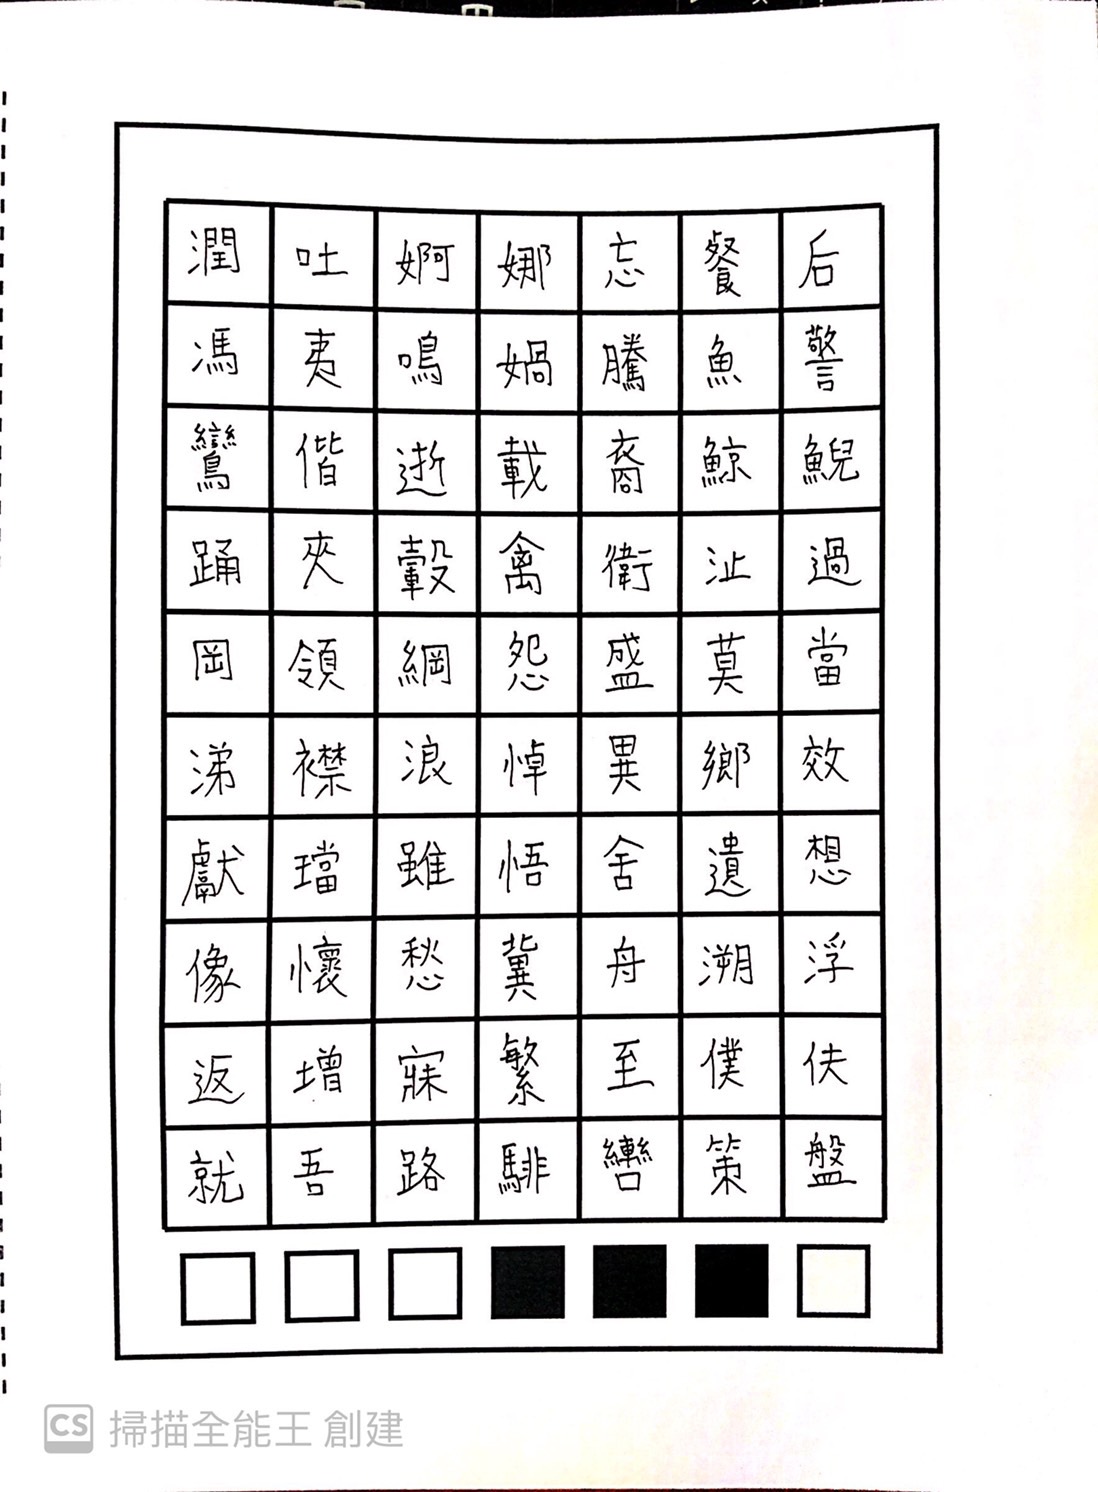 潤吐婀娜忘餐后
馮夷鳴媧騰魚警
鸞偕逝載裔鯨鯢
踊夾轂禽衛沚過
岡領綱怨盛莫當
涕襟浪悼異鄉效
獻璫雖悟舍遺想
像懷愁冀舟溯浮
返增寐繁至僕伕
就吾路騑轡策盤
CS 掃描全能王 創建